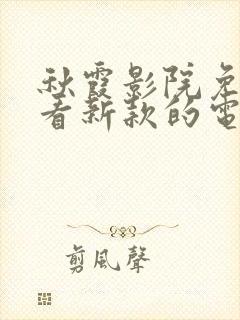 秋霞影院免
看新款的電
剪風聲